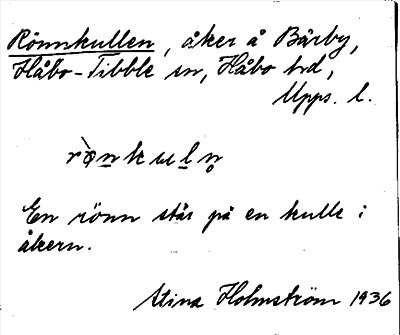 Rönnkullen, åker å Bärby,
Håbo-Tibble sn, Håbo hd,
Upps. l.
rö̀nkuln̥
En rönn står på en kulle i
åkern.
Stina Holmström 1936